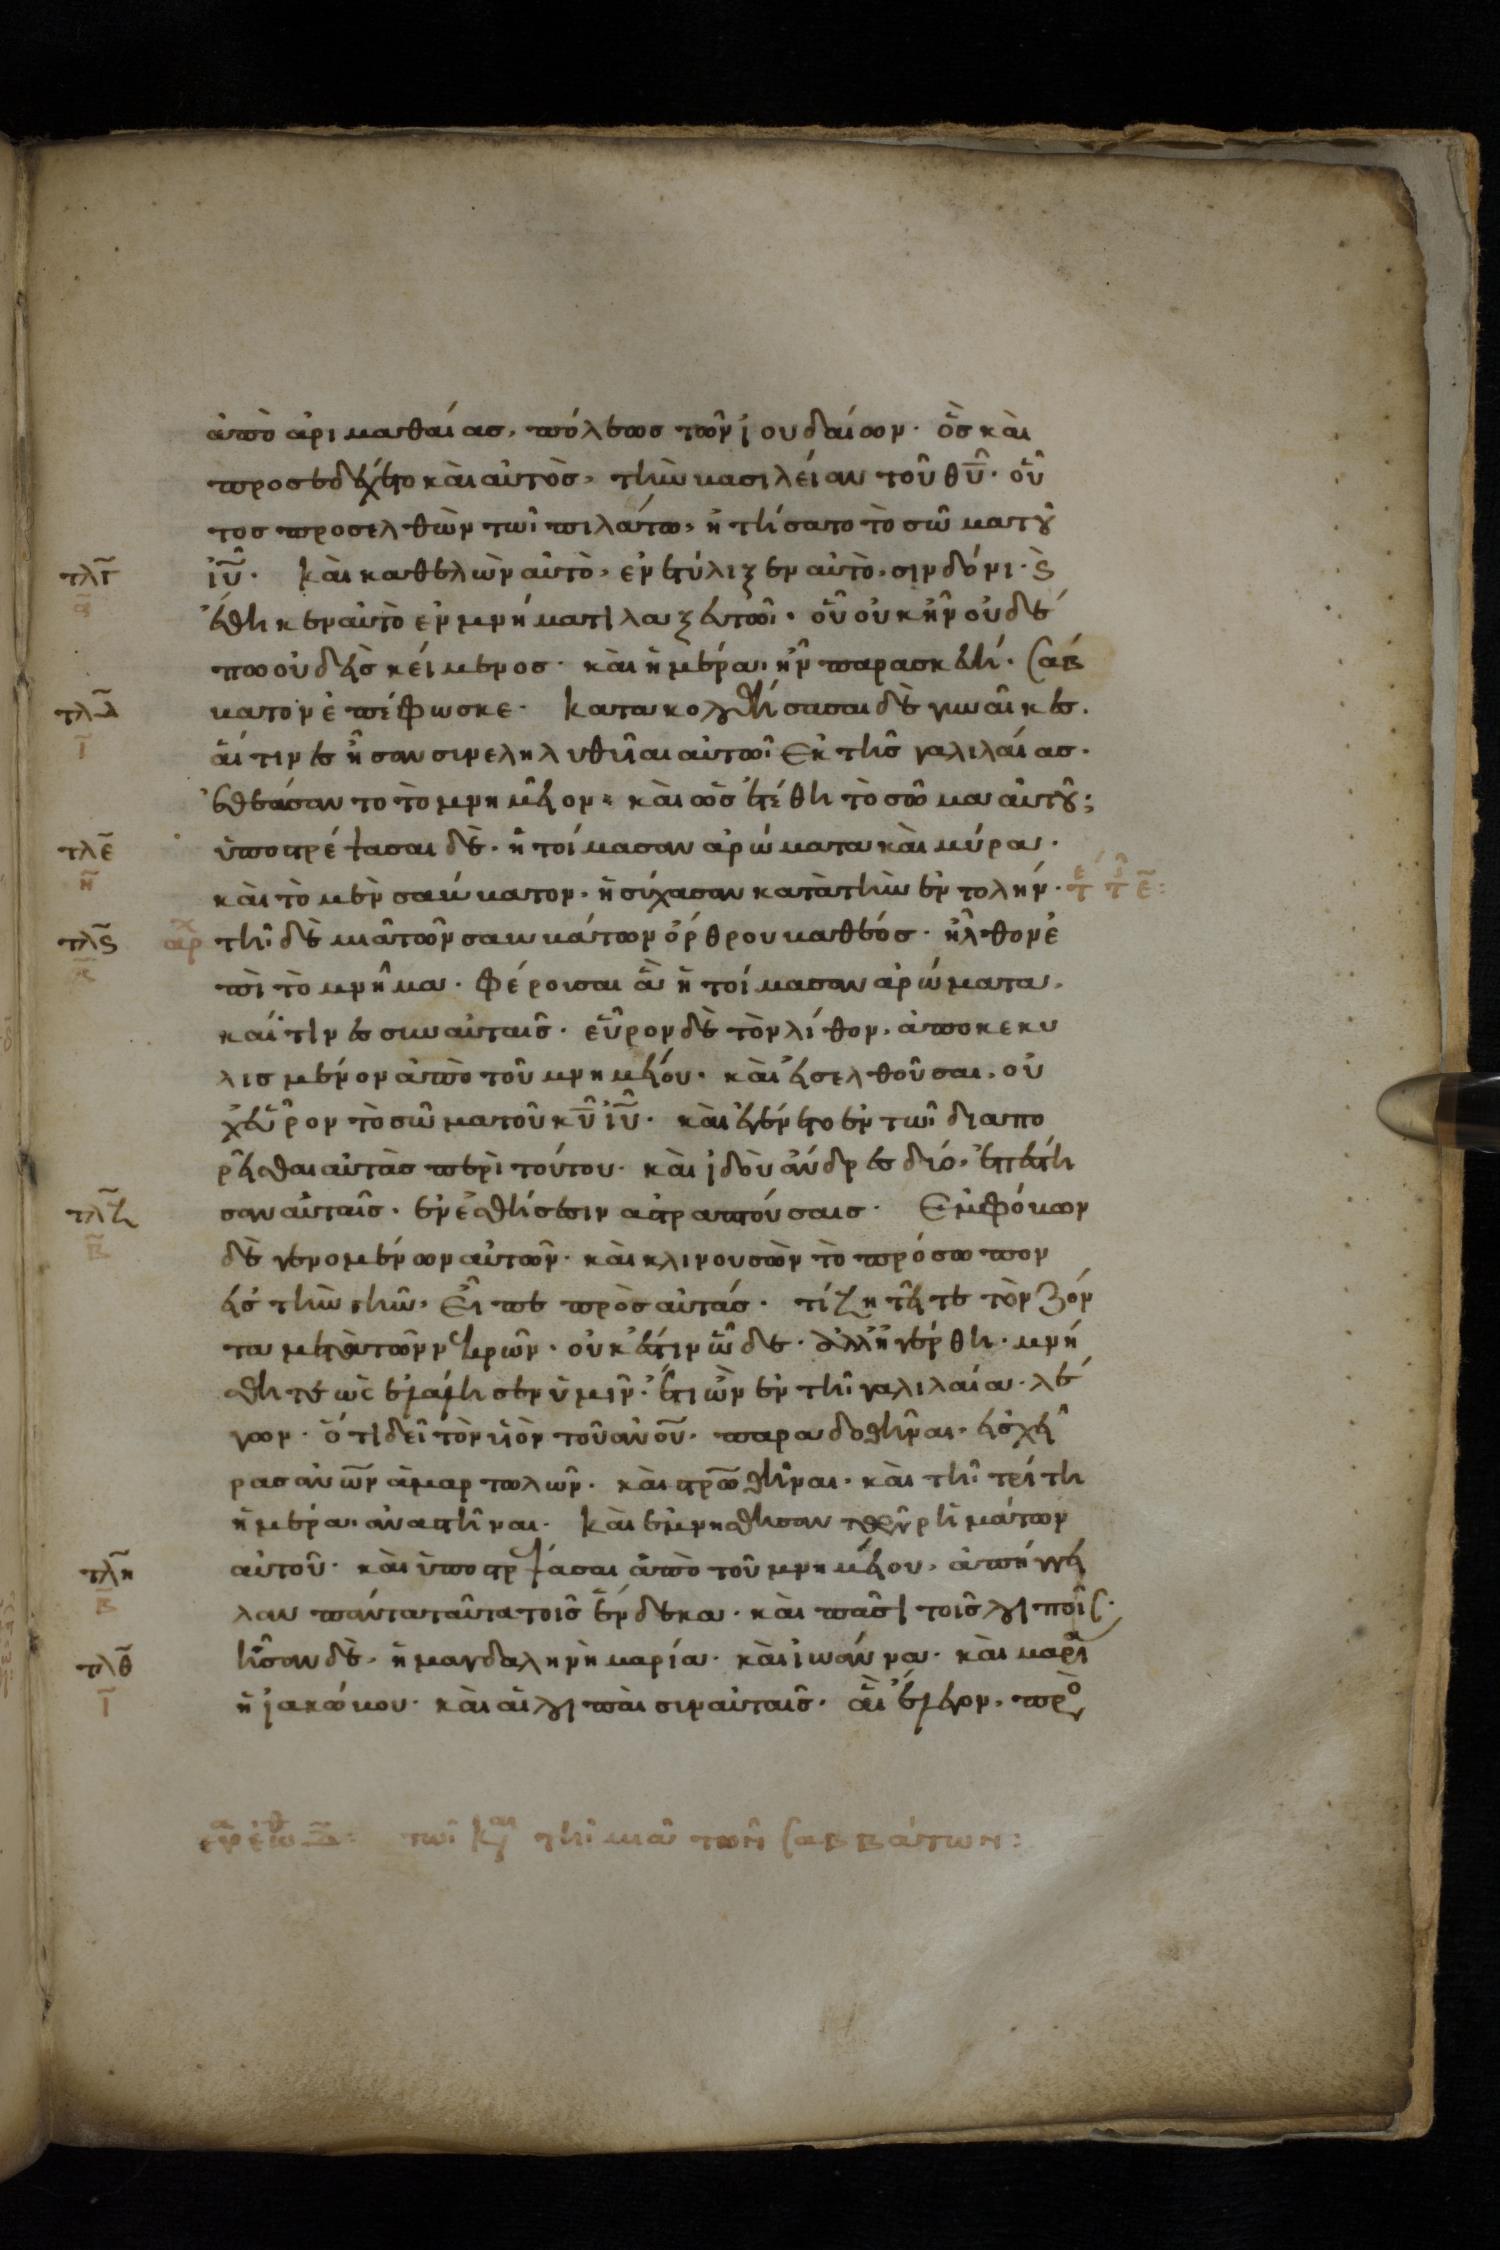 ἀπὸ ἀριμαθαίασ, πόλεωσ τῶν ἰουδαίων· ὃσ καὶ
προσεδέχετο καὶ αὐτὸσ, τὴν βασιλείαν τοῦ θῦ· οὗ
τοσ προσελθὼν τῶι πιλάτω, ἠτήσατο τὸ σῶμα τοῦ
τλγ ἰῦ· καὶ καθελὼν αὐτὸ, ἐνετύλιξεν αὐτὸ σινδόνι· ϛ
ἔθηκεν αὐτὸ ἐν μνήματι λαξευτῶι· οὗ οὐκ ἦν οὐδέ
πω οὐδεὶσ κείμενοσ· καὶ ἡμέρα, ἦν παρασκευή· σαβ
τλδ βατον ἐπέφωσκε· κατακολουθήσασαι δὲ γυναῖκεσ.
ι αἵτινεσ ἦσαν συνεληλυθυῖαι αὐτῶι ἐκ τῆσ γαλιλαίασ·
ἐθεάσαντο τὸ μνημεῖον· καὶ ὡσ ἐτέθη τὸ σῶμα αὐτοῦ;
τλε ὑποστρέψασαι δὲ· ἡτοίμασαν ἀρώματα καὶ μύρα·
η καὶ τὸ μὲν σάββατον, ἡσύχασαν κατὰ τὴν ἐντολήν·
τλϛ αρχ τῆι δὲ μιᾶ τῶν σαββάτων ὄρθρου βαθέοσ· ἦλθον ἐ
πὶ τὸ μνῆμα· φέρουσαι ἃ ἡτοίμασαν ἀρώματα,
καί τινεσ σὺν αὐταῖσ· εὗρον δὲ τὸν λίθον, ἀποκεκυ
λισμένον ἀπὸ τοῦ μνημείου· καὶ εἰσελθοῦσαι, οὐ
χ εὗρον τὸ σῶμα τοῦ κῦ ἰῦ· καὶ ἐγένετο ἐν τῶι διαπο
ρεῖσθαι αὐτὰσ περὶ τούτου· καὶ ἰδοὺ ἄνδρεσ δύο, ἐπέστη
τλζ σαν αὐταῖσ· ἐν ἐσθήσεσιν ἀστραπτούσαισ· ἐμφόβων
β δὲ γενομένων αὐτῶν· καὶ κλινουσῶν τὸ πρόσωπον
εἰσ τὴν γῆν, εἶπε πρὸσ αὐτάσ· τί ζητεῖτε τὸν ζόν
τα μετὰ τῶν νεκρῶν· οὐκ ἔστιν ὧδε· ἀλλ' ἠγέρθη· μνή
σθητε ὡς ἐλάλησεν ὑμῖν· ἔτι ὢν ἐν τῆι γαλιλαία· λέ
γων· ὅτι δεῖ τὸν υἱὸν τοῦ ἀνοῦ· παραδοθῆναι, εἰσ χεῖ
ρασ ἀνῶν ἁμαρτωλῶν· καὶ στρωθῆναι· καὶ τῆι τρίτη
ἡμέρα, ἀναστῆναι· καὶ ἐμνήσθησαν τῶν ρημάτων
τλη αὐτοῦ· καὶ ὑποστρέψασαι ἀπὸ τοῦ μνημείου, ἀπήγγει
β λαν πάντα ταῦτα τοῖσ ἕνδεκα· καὶ πᾶσι τοῖσ λοιποῖς·
τλθ ἦσαν δὲ, ἡ μαγδαληνὴ μαρία· καὶ ἰωάννα· καὶ μαρία
ι ἡ ἰακώβου· καὶ αἱ λοιπαὶ σὺν αὐταῖσ· αἳ ἔλεγον, πρὸ
τῶι κ τῆι μιᾶ τῶν σαββάτων: